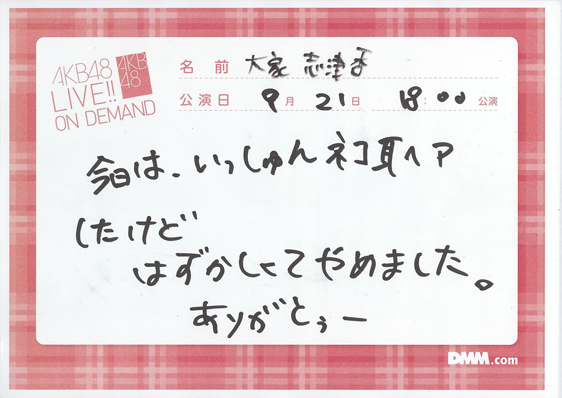 AKB48
LIVE!!
ON DEMAND
AKB
48
名 前 大家 志津香
公演日 9月 21日 18:00 公演
今日は、いっしゅんネコ耳ヘア
したけど
はずかしくてやめました。
ありがとぅー
DMM.com